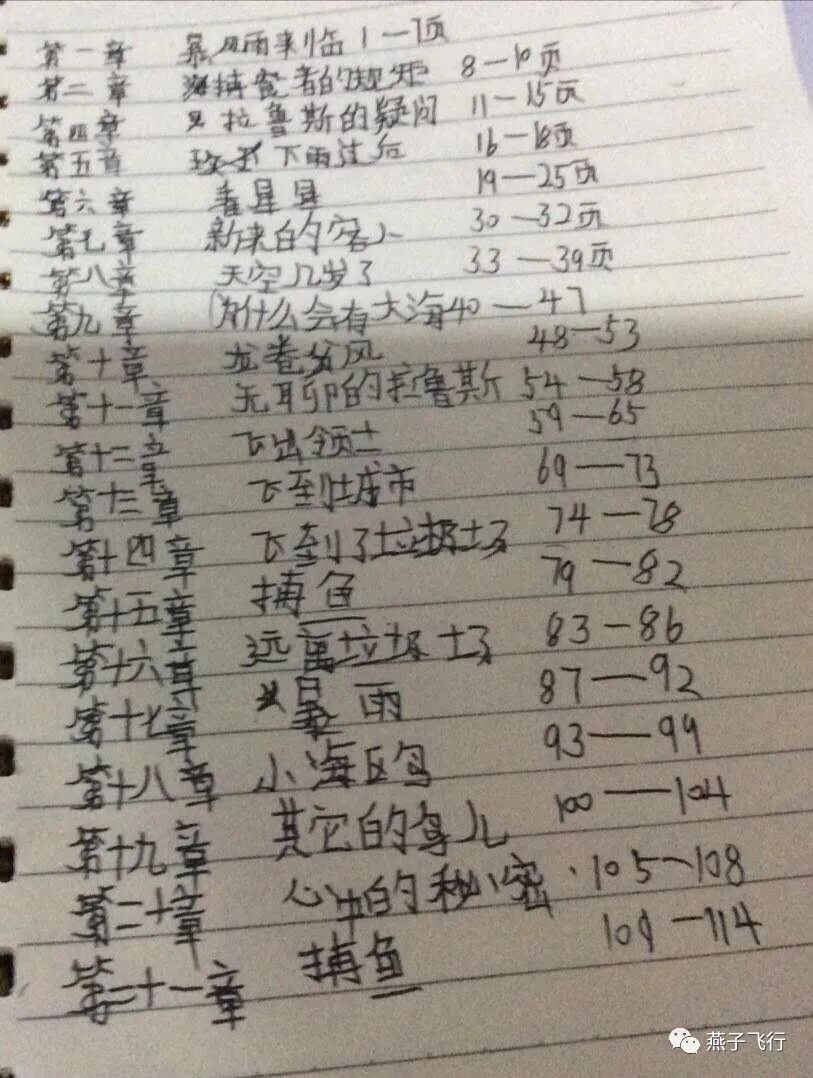 第一章 暴风雨来临 1—7页
第二章 捕食者的规矩 8—10页
第四章 拉鲁斯的疑问 11—15页
第五章 下雨过后 16—18页
第六章 看星星 19—25页
第七章 新来的客人 30—32页
第八章 天空几岁了 33—39页
第九章 为什么会有大海 40—47
第十章 龙卷风 48—53
第十一章 无耳卵的拉鲁斯 54—58
第十二章 飞出领土 59—65
第十三章 飞到城市 69—73
第十四章 飞到了垃圾场 74—78
第十五章 捕鱼 79—82
第十六章 远离垃圾场 83—86
第十七章 暴雨 87—92
第十八章 小海区鸟 93—99
第十九章 其它的鸟儿 100—104
第二十章 心中的秘密 105—108
第二十一章 捕鱼 109—114
燕子飞行